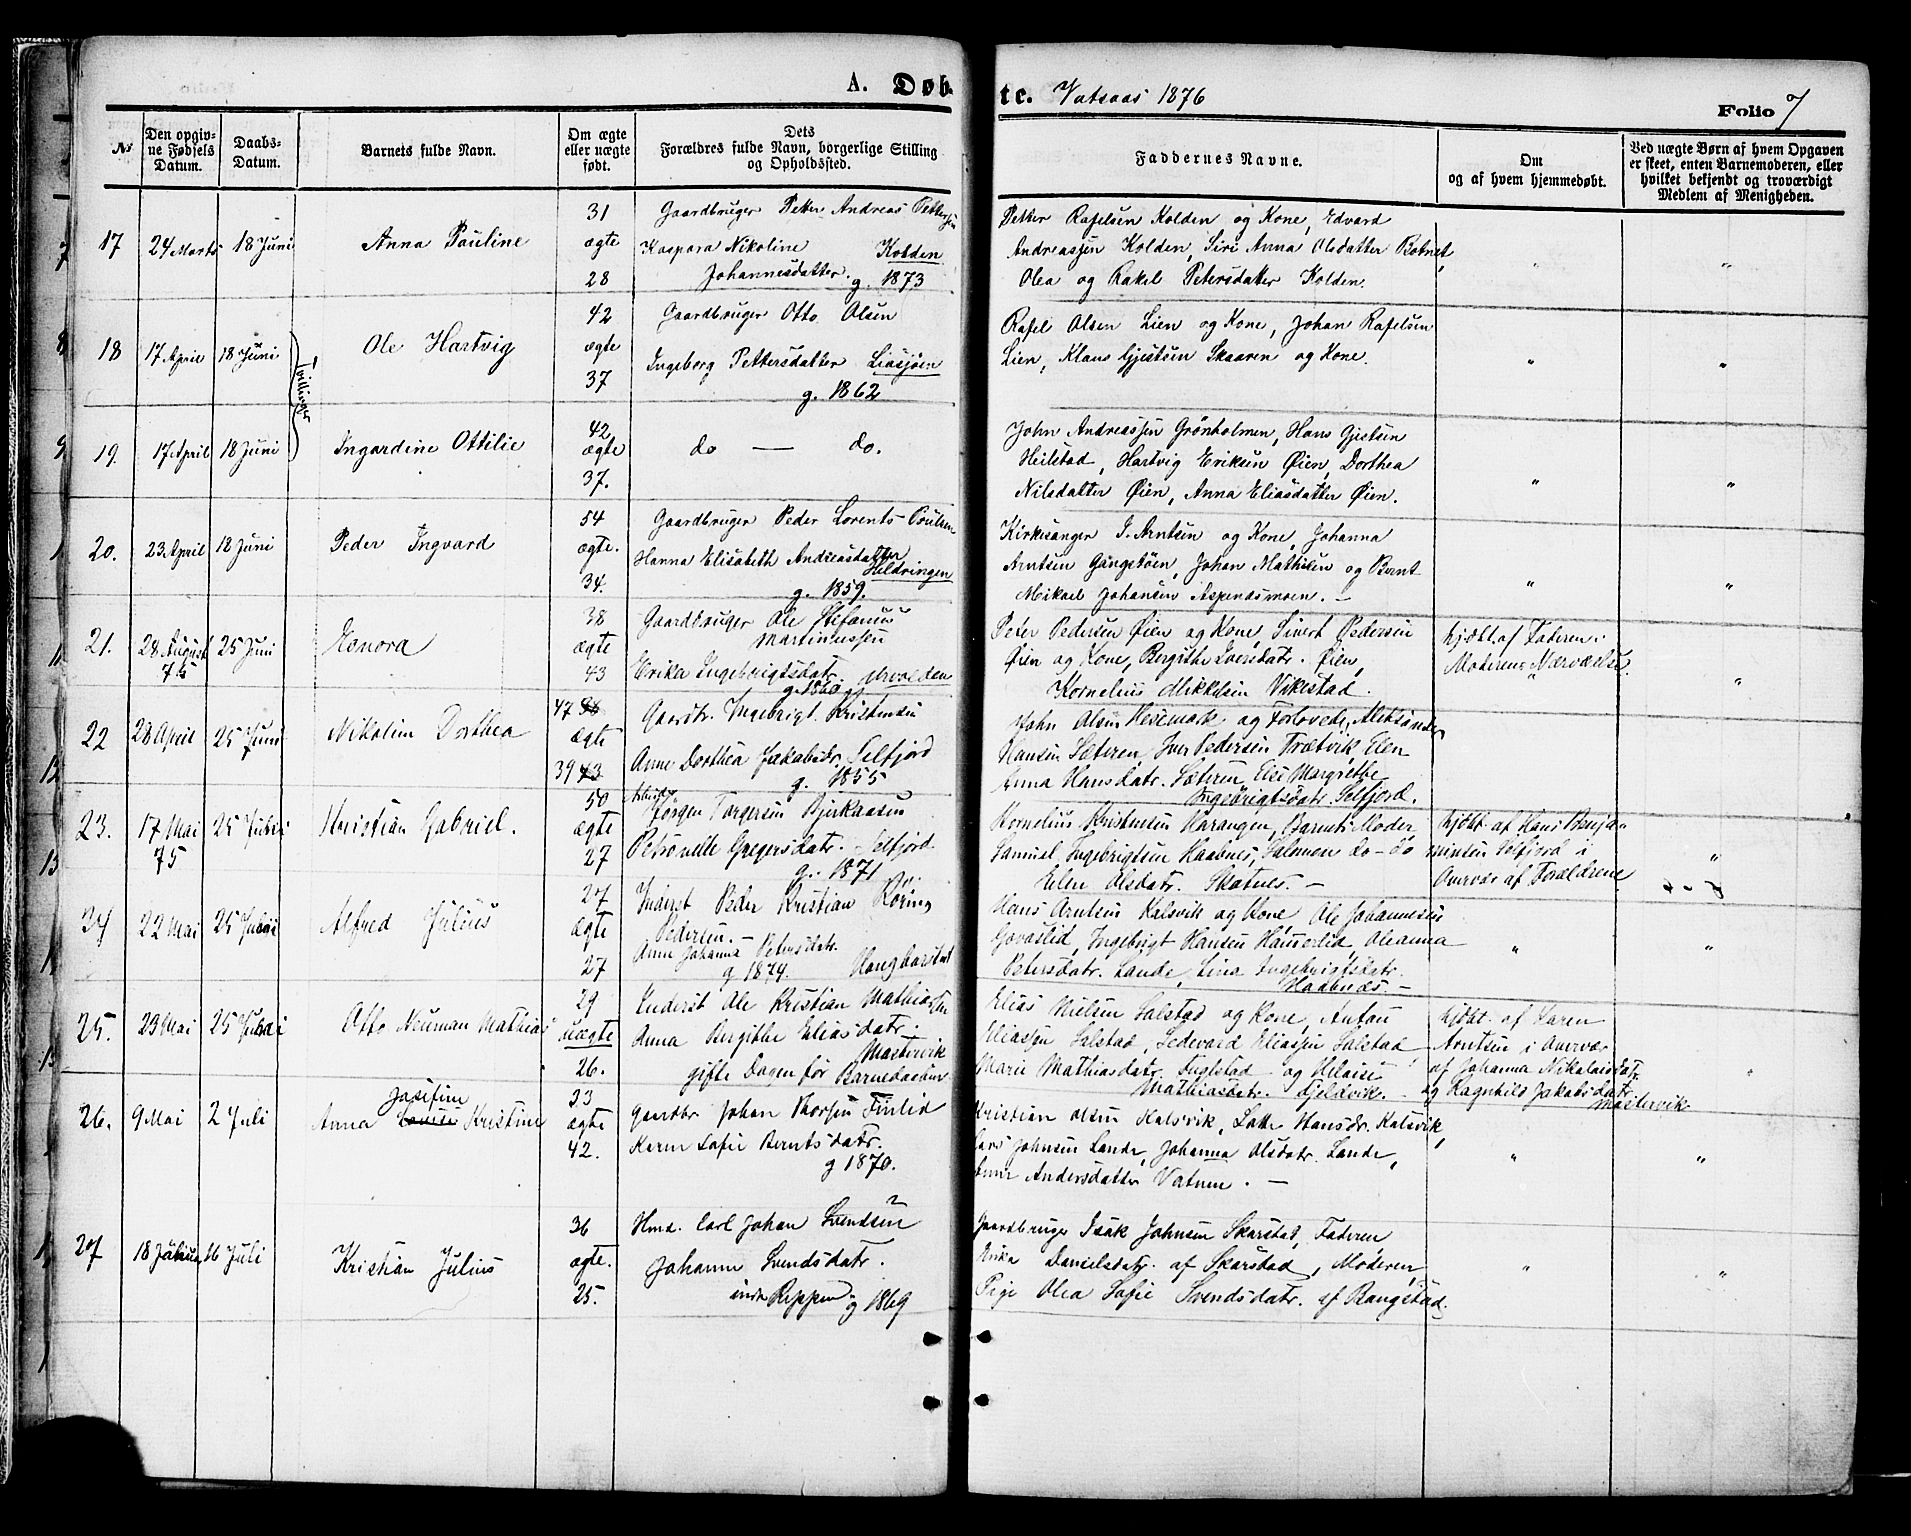 A. Døb-
te. Vatsaas 1876
Folio 7
No
Den opgiv-
ne Fødsels
Datum.
Daabs-
Datum.
Barnets fulde Navn.
Om ægte
eller uægte
født.
Dets
Forældres fulde Navn, borgerlige Stilling
og Opholdssted.
Faddernes Navne.
Om
og af hvem hjemmedøbt.
Ved uægte Børn af hvem Opgaven
er skeet, enten Barnemoderen, eller
hvilket bekjendt og troværdigt
Medlem af Menigheden.
17 24 Marts 18 Juni Anna Pauline
31
ægte
28
Gaardbruger Petter Andreas Pettersen
Kaspara Nikoline Kolden
Johannesdatter. g. 1873
Petter Rafelsen Kolden og Kone, Edvard
Andreassen Kolden, Siri Anna Olsdatter Botnet,
Olea og Rakel Petersdatter Kolden.
" "
18 17 April 18 Juni Tvillinger Ole Hartvig
42
ægte
37
Gaardbruger Otto Olsen
Ingeborg Pettersdatter Liasjøen
g. 1862
Rafel Olsen Lien og Kone, Johan Rafelsen
Lien, Klaus Gjertsen Skaaren og Kone.
" "
19. 17 April 18 Juni Ingardine Ottilie
42
ægte
37.
do — do.
John Andreassen Grønholmen, Hans Gjertsen
Heilstad, Hartvig Eriksen Øien, Dorthea
Nilsdatter Øien, Anna Eliasdatter Øien.
" "
20. 23 April 18 Juni Peder Ingvard
54
ægte.
34.
Gaardbruger Peder Lorents Poulsen
Hanna Elisabeth Andreasdatter
Heldringen
g. 1859.
Kirkesanger J. Arntsen og Kone, Johanna
Arntsen Gangstøen, Johan Mathisen og Bernt
Mikael Johansen Aspenesmoen. –
" "
21. 28 August 75 25 Juni Eonora
38
ægte
43
Gaardbruger Ole Stefanus
Martinussen
Erika Ingebrigtsdatr.
g. 1860
Peter Pedersen Øien og Kone, Sivert Pedersen
Øien og Kone, Bergithe Iversdatr. Øien,
Kornelius Mikkelsen Vikestad.
hjdbt. af Faderen i
Moderens Nærværelse.
"
22 28 April 25 Juni Nikoline Dorthea
47
ægte
39 43
Gaardbr. Ingebrigt Kristensen
Anne Dorthea Jakobsdr. Selfjord
g. 1855
John Olsen Hesemark og Forlovede, Aleksander
Hansen Sæteren, Iver Pedersen Trætvik, Elen
Anna Hansdatr. Sæteren, Else Margrethe
Ingebrigtsdatr. Selfjord.
23. 17 Mai 75 25 Juni Kristian Gabriel.
50
ægte
27
Arbeider
Jørgen Torgersen Bjerkaasen
Petronelle Gregersdatr. Selfjord
g. 1871
Kornelius Kristensen Harangen, Barnets Moder
Samuel Ingebrigtsen Haabnes, Salomon do – do
Elen Olsdatr. Skatnes. –
hjdbt. af Hans Benja-
minsen Selfjord i
Overvær af Forældrene
"
24 22 Mai 25 Juni Alfred Julius
27
ægte
27
Inderst Peder Kristian Røring
Pedersen. –
Anne Johanna Petersdatr.
g 1874.
Hans Arntsen Kalsvik og Kone, Ole Johannesen
Govaslid, Ingebrigt Hansen Hamerlid, Oleanna
Petersdatr. Lande, Lina Ingebrigtsdatr.
Haabnes. –
" "
25. 23 Mai 25 Juni Otto Neuman Mathias
29
uægte
26.
Inderst Ole Kristian Mathiassen
Anna Bergitha Eliasdatr.
Mastervik
gifte Dagen før Barnedaaben
Elias Nielsen Salstad og Kone, Antau
Eliassen Salstad, Sedevard Eliassen Salstad
Marie Mathiasdatr. Fuglstad og Heloise
Mathiasdatr. Fjeldvik. –
hjdbt. af Karen
Arntsen i Overvær
af Johanna Nikolaisdatr.
og Ragnhild Jakobsdatr.
Mastervik
"
26. 9 Mai 2 Juli Anna Josefine Kristine
33
ægte
42.
Gaardbr. Johan Thorsen Finlid
Karen Sofie Berntsdatr.
g 1870.
Kristian Olsen Kalsvik, Lotte Hansdr. Kalsvik,
Lars Johnsen Lande, Johanna Olsdatr. Lande,
Anne Andersdatter Vatnen. –
" "
27 18 Januar 16 Juli Kristian Julius
36
ægte.
25.
Hmd. Carl Johan Svendsen
Johanne Svendsdatr.
indre Reppen g 1869
Gaardbruger Isak Johnsen Skarstad, Faderen,
Erika Danielsdatr. af Skarstad, Moderen,
Pige Olea Sofie Svendsdatr. af Bangstad.
" "